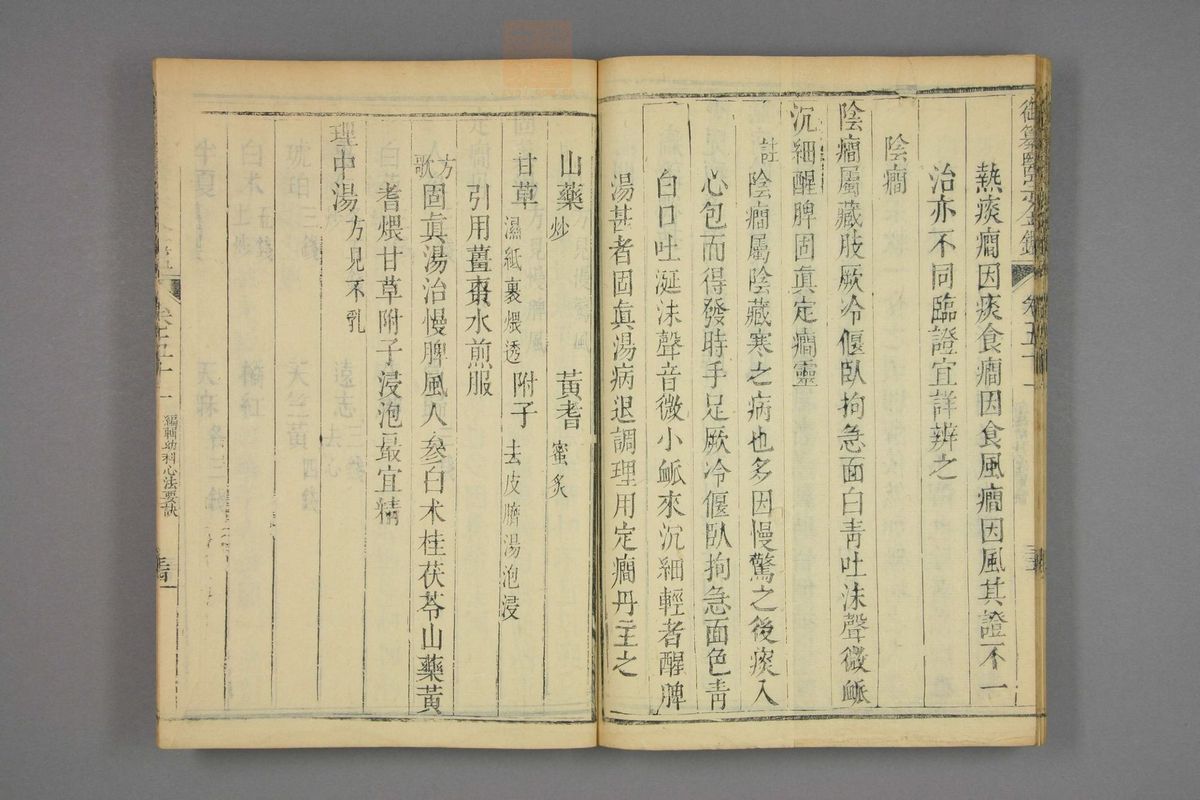 御纂醫宗金鑑 卷五十一
熱痰癎因痰食癎因食風癎因風其證不一
治亦不同臨證宜詳辨之
陰癎
陰癎屬藏肢厥冷偃臥拘急面白青吐沫聲微脈
沉細醒脾固眞定癎靈
註陰癎屬陰藏寒之病也多因慢驚之後痰入
心包而得發時手足厥冷偃臥拘急面色青
白口吐涎沫聲音微小脈來沉細輕者醒脾
湯甚者固眞湯病退調理用定癎丹主之
山藥炒 黃耆蜜炙
甘草濕紙裹煨透 附子去皮臍湯泡浸
引用薑棗水煎服
方歌固眞湯治慢脾風人參白朮桂茯苓山藥黃
耆煨甘草附子浸泡最宜精
理中湯方見不乳
編輯幼科心法要訣